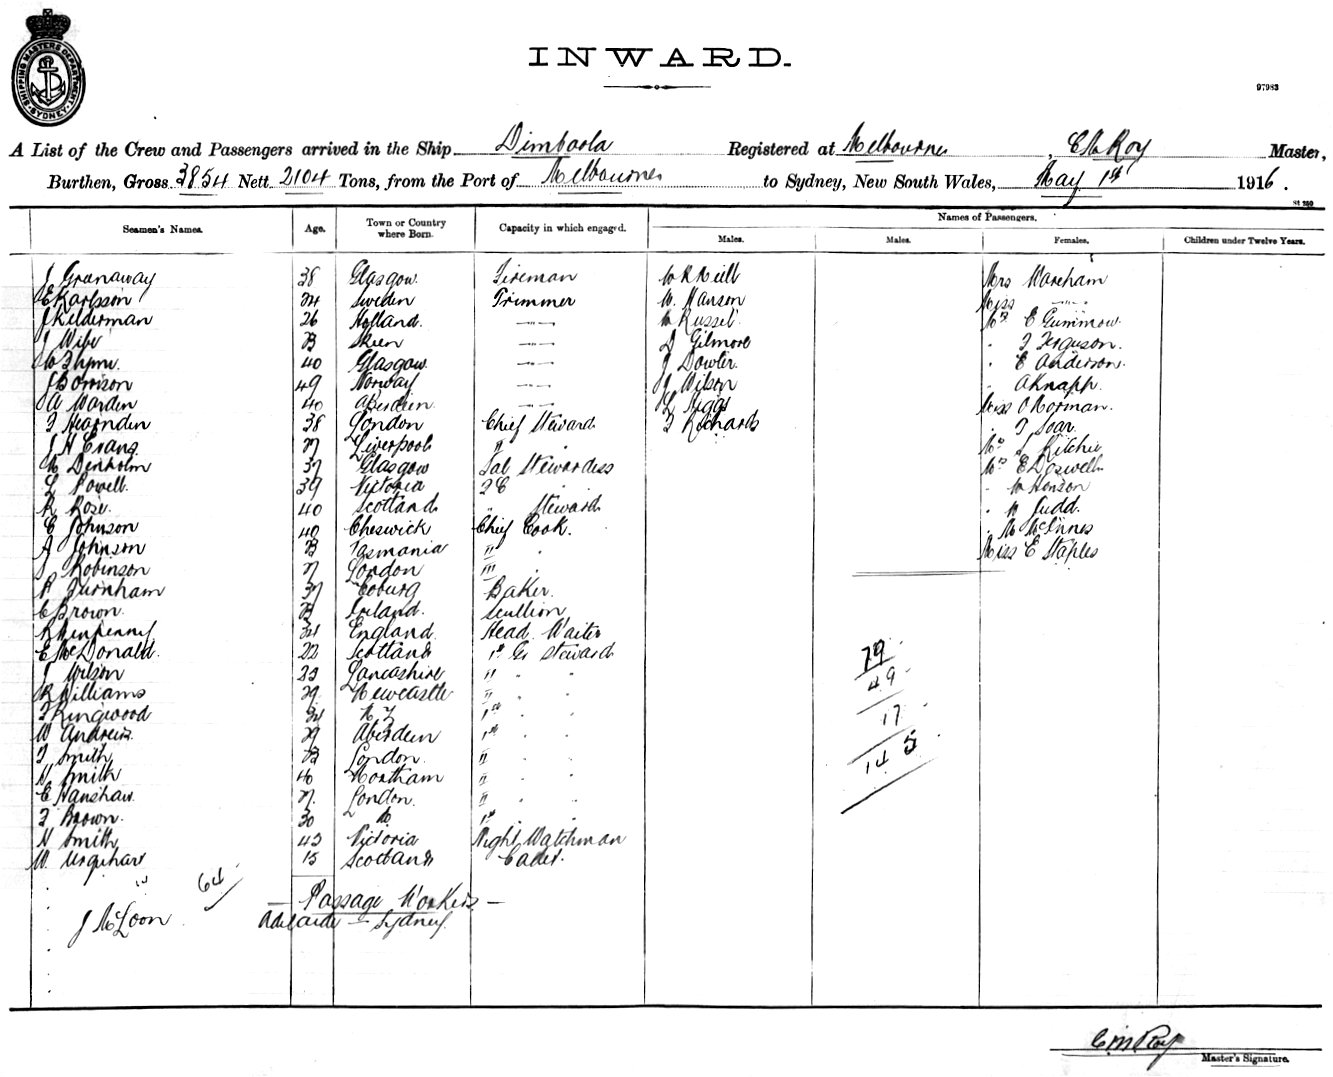 SHIPPING MASTERS DEPARTMENT SYDNEY
INWARD.
97983
A List of the Crew and Passengers arrived in the Ship Dimboola Registered at Melbourne, C M Roy Master,
Burthen, Gross 3854 Nett 2104 Tons, from the Port of Melbourne to Sydney, New South Wales, May 1st 1916.
Seamen's Names. Age. Town or Country where Born. Capacity in which engaged. Names of Passengers.
Males. Males. Females. Children under Twelve Years.
J Granaway 38 Glasgow Fireman W R Neill Mrs Wareham
E Karlsson 24 Sweden Trimmer W. Hanson Miss " "
J Kelderman 26 Holland. " " W Russel Mrs E Gummow
J Wibe Skien " " Gilmore " Ferguson.
W Thyme 40 Glasgow " " J Dowler " E Anderson
J Borrison 49 Norway " " Wilson " A Knapp.
A Warden 40 Aberdeen " " Higgs Miss O Norman.
Hearnden 38 London Chief Steward Richards " Soar.
J H Evans 27 Liverpool " " Ritchie
Denholm 37 Glasgow Sal Stewardess Mrs E Doswell
L Powell. 39 Victoria 2 C " " Henson
R Rose. 40 Scotland " Steward " Judd.
C Johnson 40 Cheswick Chief Cook. " M McInnes
A Johnson Tasmania " " Miss E Staples
J Robinson 27 London "'
P Furnham 37 Coburg Baker.
C Brown. Ireland. Scullion
R Kenpenny 34 England. Head Waiter
E McDonald. 22 Scotland 1st Gr Steward
J Wilson 23 Lancashire " " "
R Williams 29 Newcastle " " "
Ringwood 34 N Z 1st " "
W Andrews. 29 Aberdeen 1st " "
Smith London. " " "
H Smith 40 " " "
C Hanshaw. 27 London. " " "
Brown. 30 do 1st " "
H Smith 43 Victoria Night Watchman
W. Urquhart 15 Scotland Cadet.
79
49
17
145
64
— Passage Workers —
J McLoon Adelaide — Sydney
C M Roy
Master's Signature.